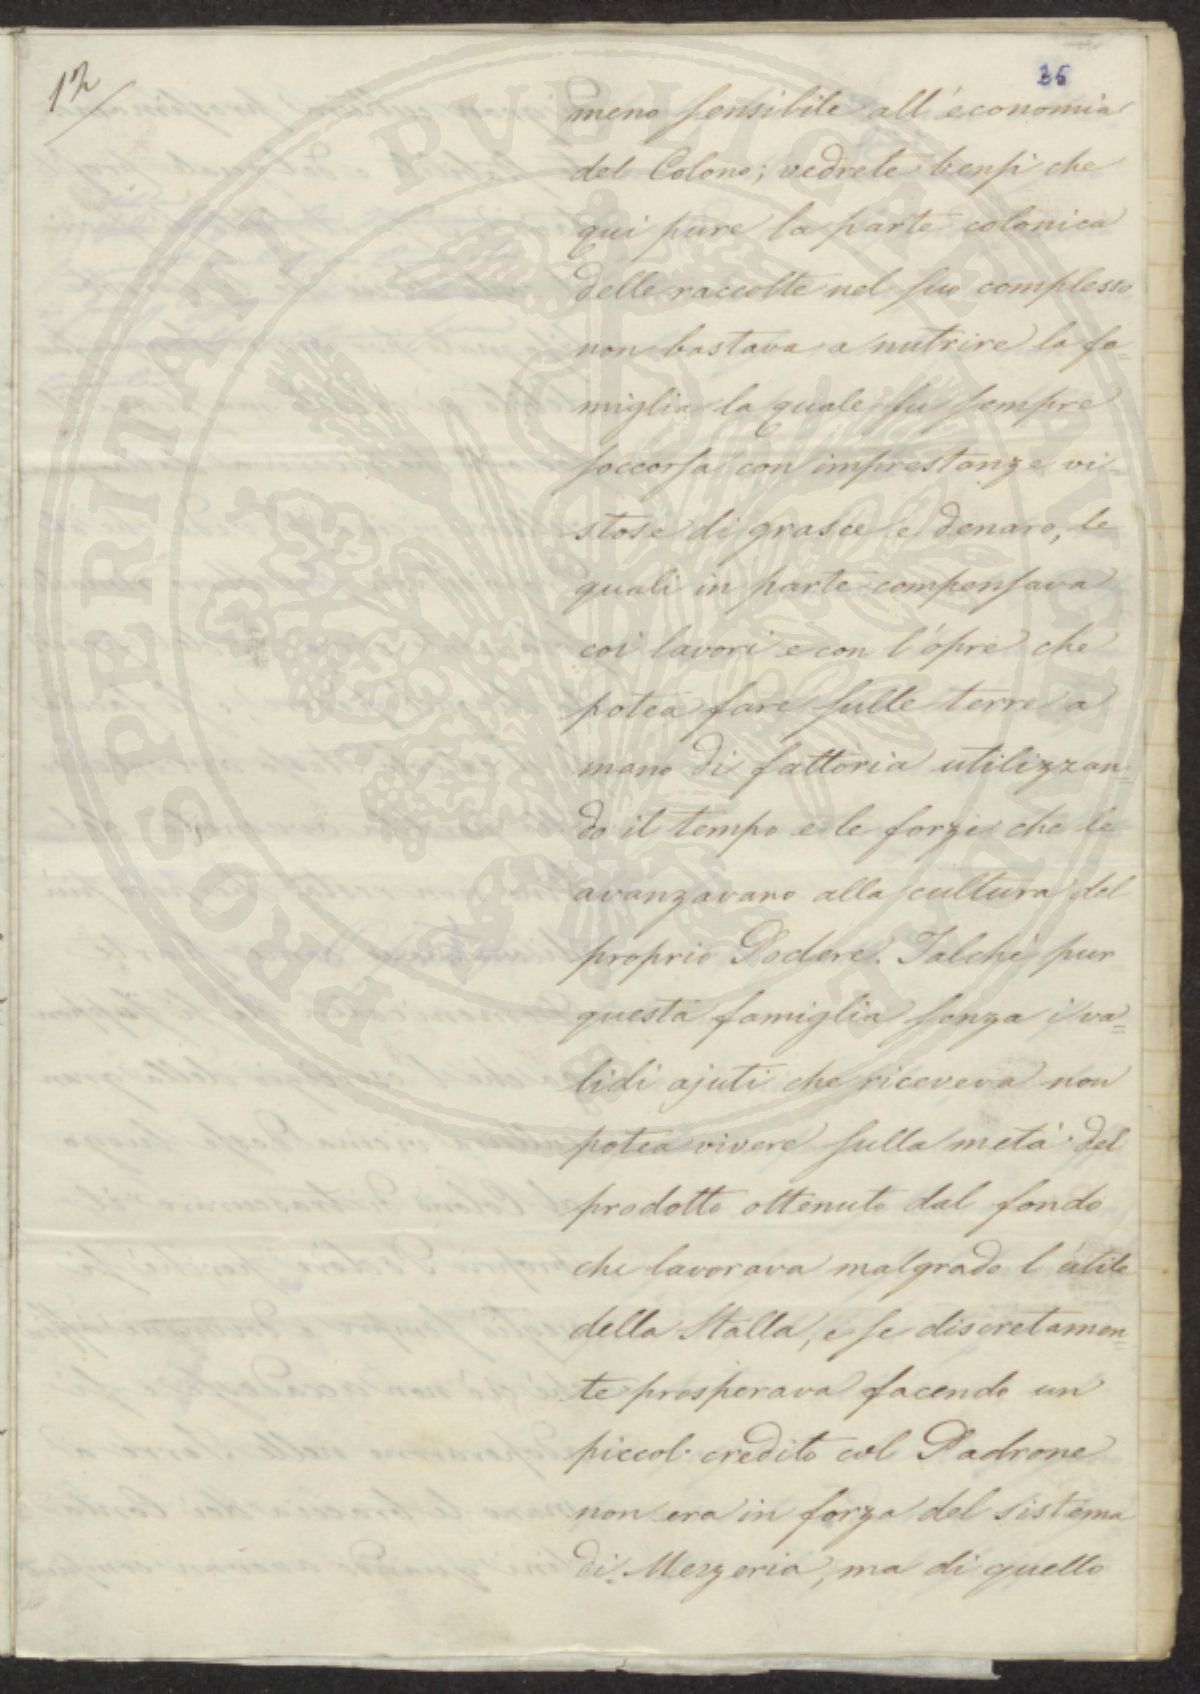 12
36
meno sensibile all'economia
del Colono; vedrete bensì che
qui pure la parte colonica
delle raccolte nel suo complesso
non bastava a nutrire la fa-
miglia la quale fu sempre
soccorsa con imprestanze vi-
stose di grasce e denaro, le
quali in parte compensava
coi lavori e con l'opre che
potea fare sulle terre a
mano di fattoria utilizzan-
do il tempo e le forze che le
avanzavano alla cultura del
proprio Podere. Talchè pur
questa famiglia senza i va=
lidi ajuti che riceveva non
potea vivere sulla metà del
prodotto ottenuto dal fondo
che lavorava malgrado l'utile
della Stalla, e se discretamen=
te prosperava facendo un
piccol credito col Padrone
non era in forza del sistema
di Mezzeria, ma di quello
PROSPERITATI PUBLICAE AUGENDAE